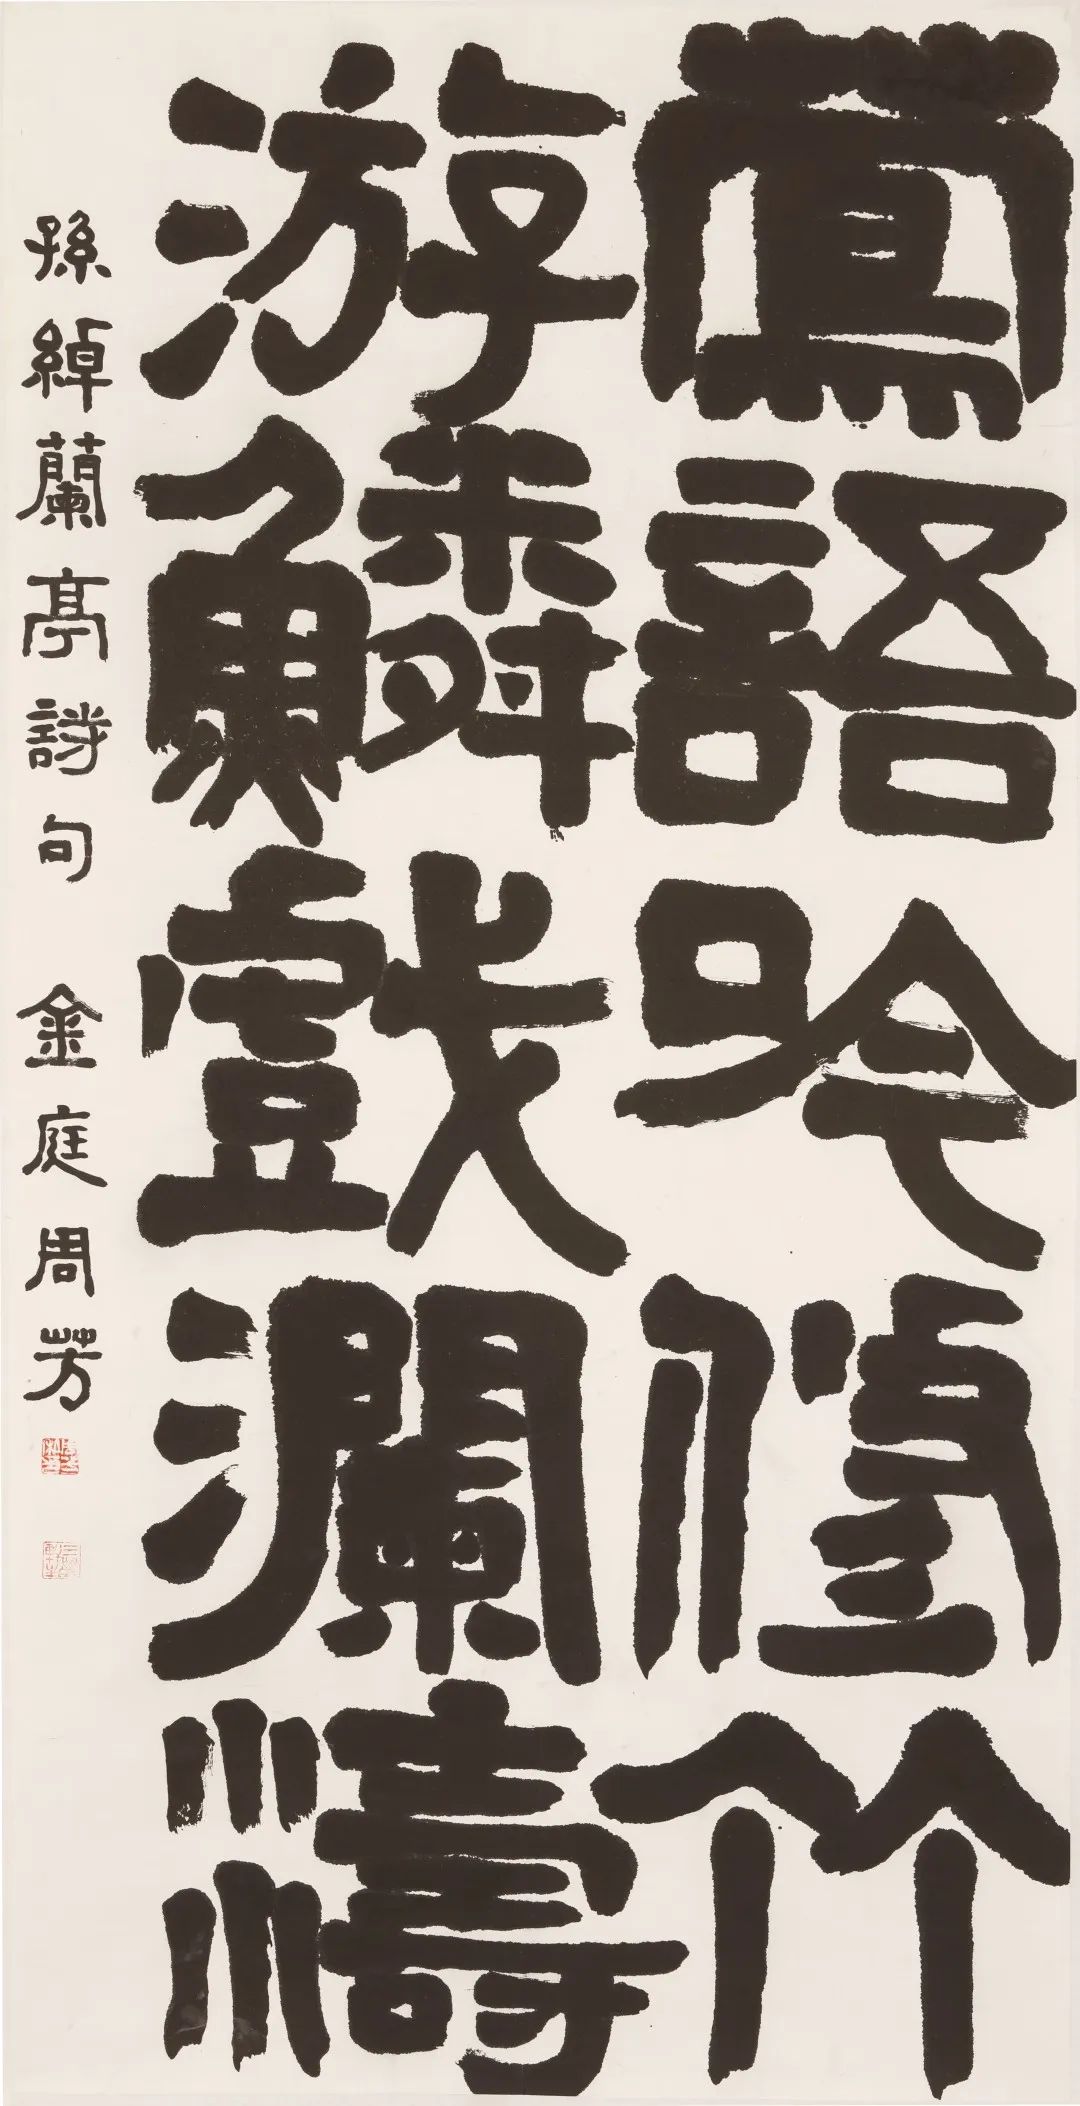 鶯語吟脩竹
游鱗戲瀾濤
孫綽蘭亭詩句 金庭周芳